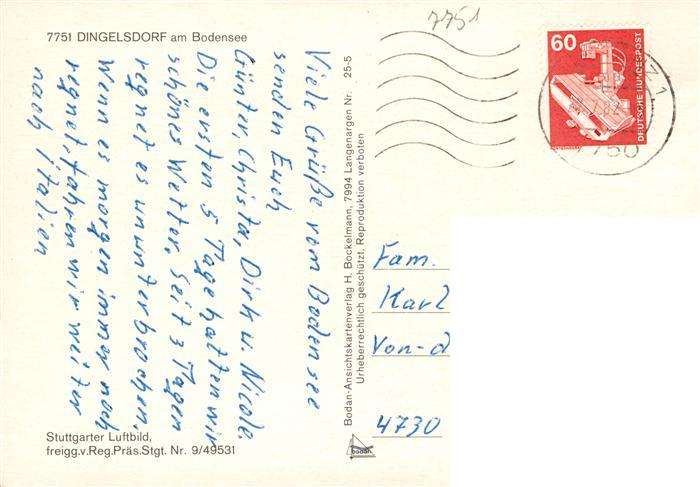 7751 DINGELSDORF am Bodensee
Viele Grüße vom Bodensee
senden Euch
Günter, Christa, Dirk u. Nicole
Die ersten 5 Tage hatten wir
schönes Wetter, seit 3 Tagen
regnet es ununterbrochen,
Wenn es morgen immer noch
regnet, fahren wir weiter
nach Italien
Stuttgarter Luftbild,
freigg.v.Reg.Präs.Stgt. Nr. 9/49531
Bodan-Ansichtskartenverlag H. Bockelmann, 7994 Langenargen Nr. 25-5
Urheberrechtlich geschützt. Reproduktion verboten
bodan
7751
60
DEUTSCHE BUNDESPOST
7750
Fam.
Karl
Von-d
4730